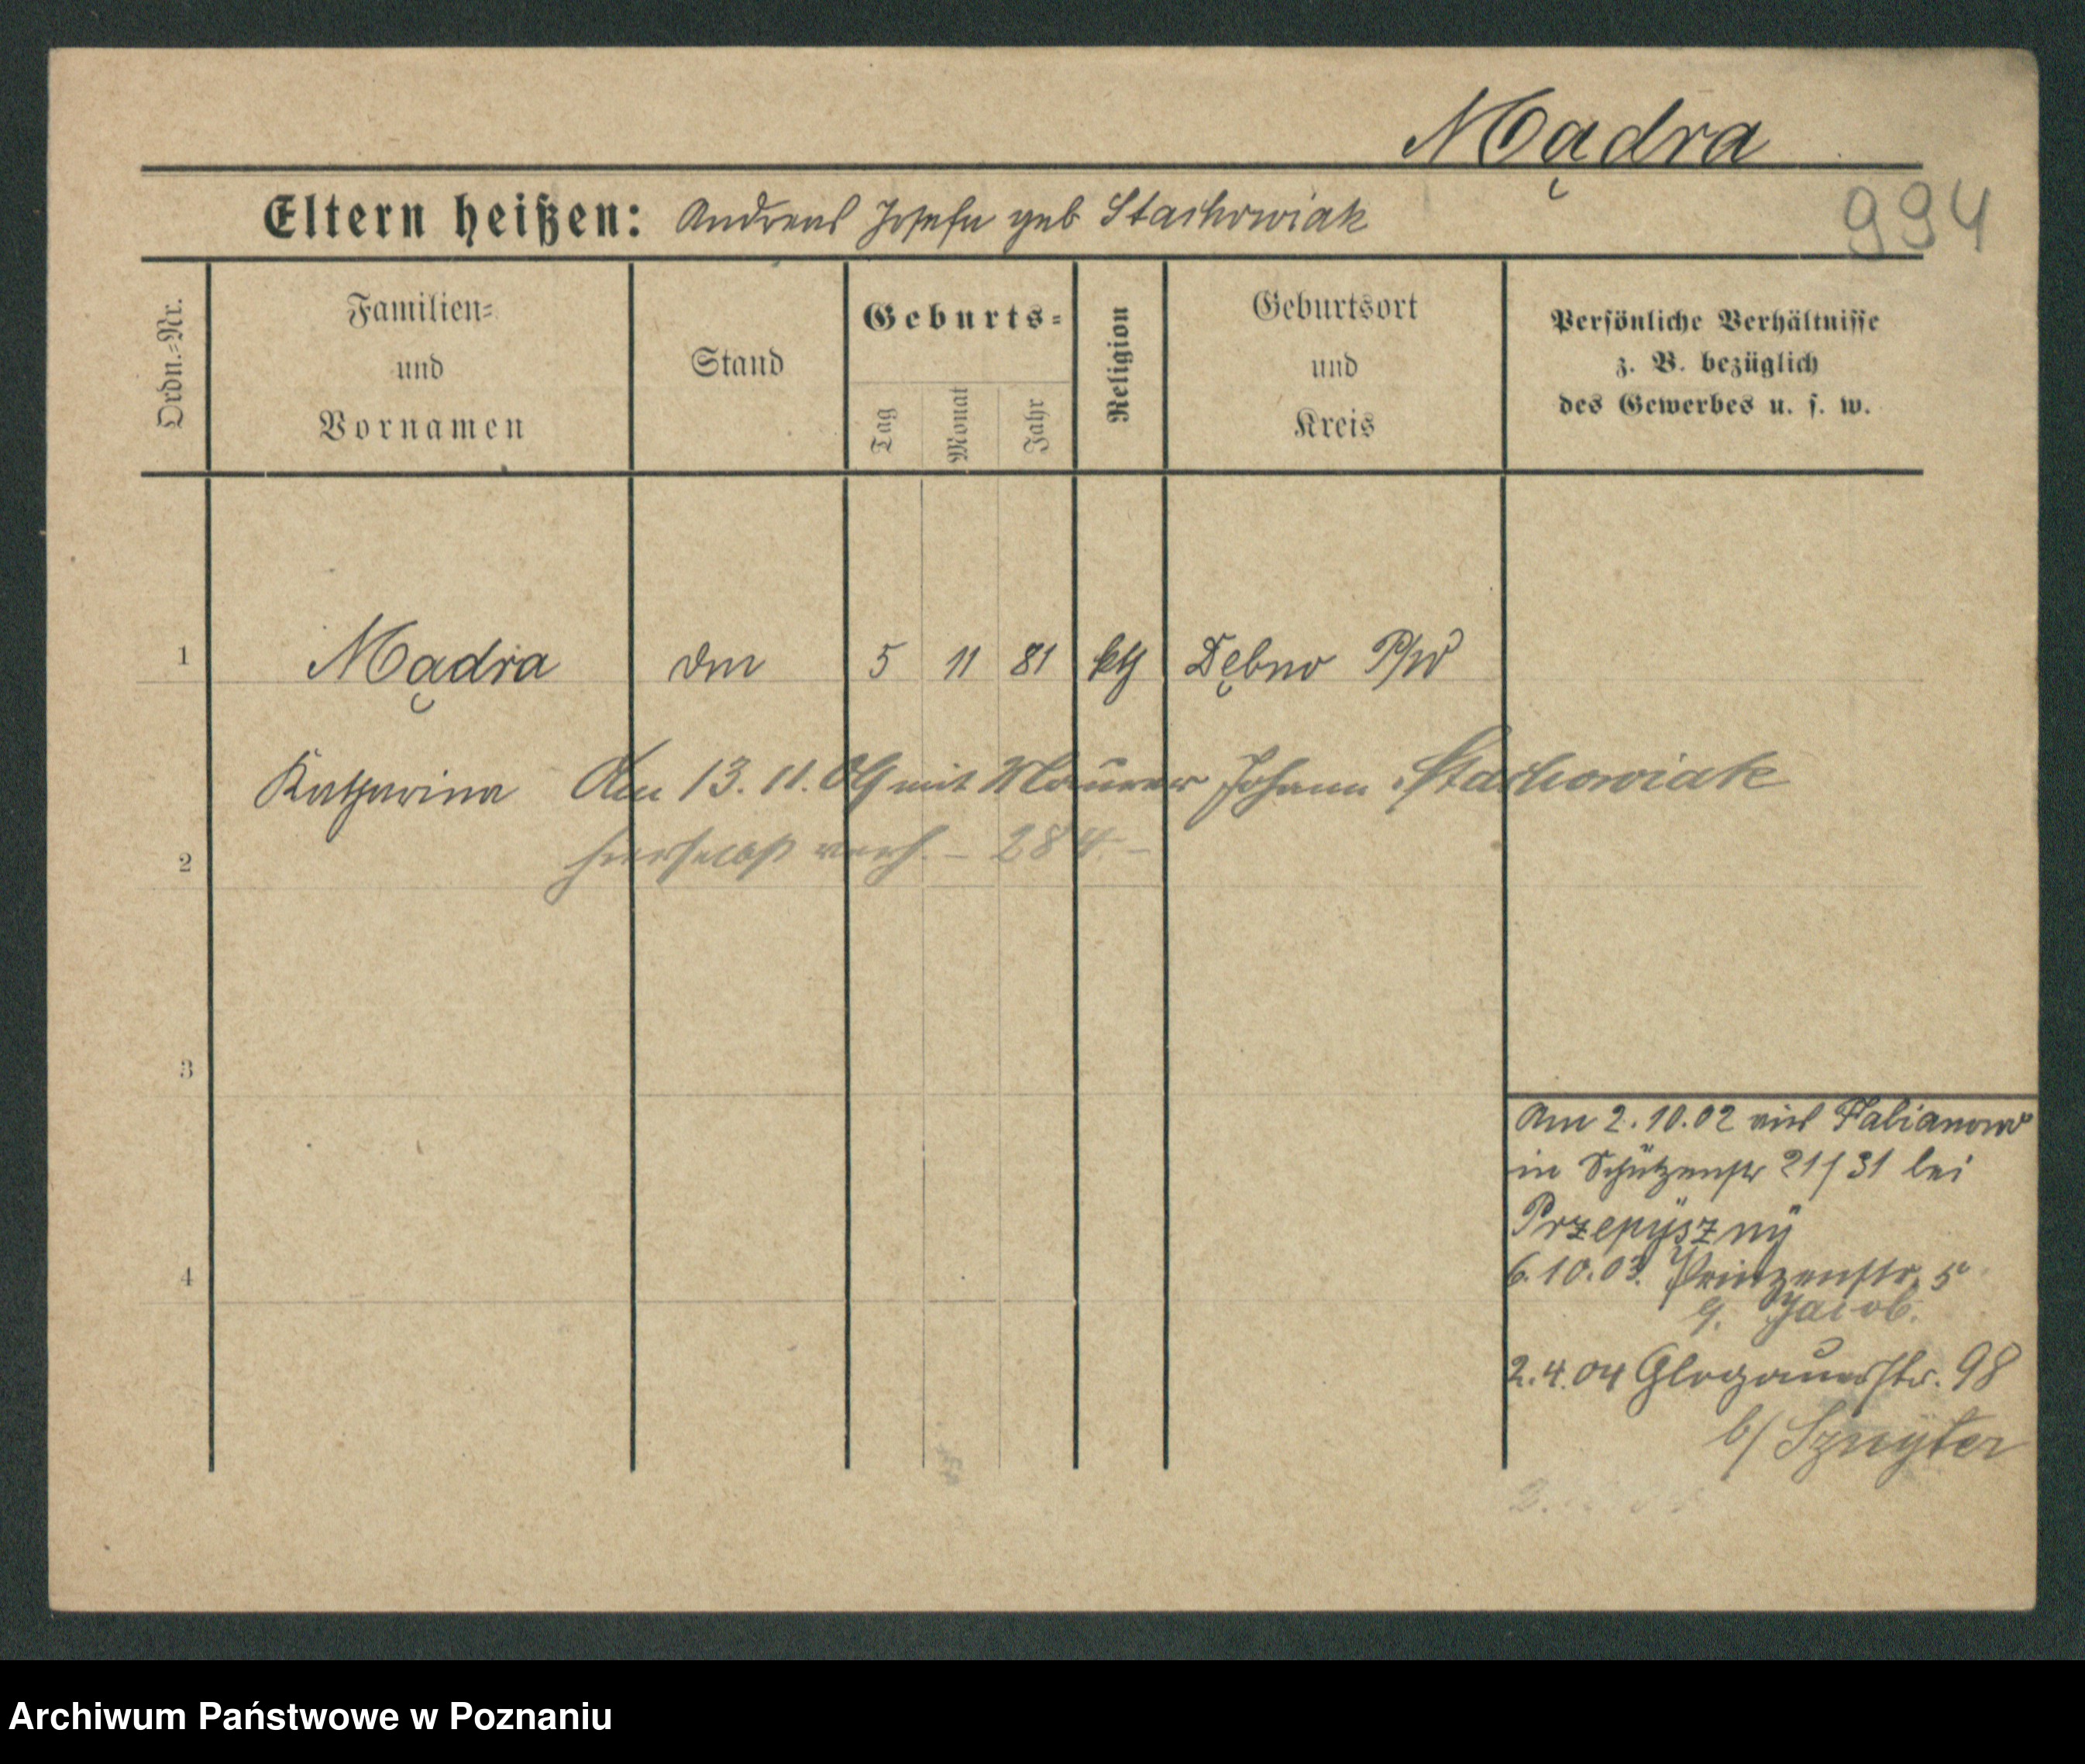 Mądra
Eltern heißen: Andreas Josefa geb Stachowiak
994
Ordn.=Nr.
Familien=
und
Vornamen
Stand
Geburts=
Tag
Monat
Jahr
Religion
Geburtsort
und
Kreis
Persönliche Verhältnisse
z. B. bezüglich
des Gewerbes u. s. w.
1 Mądra 5 11 81 kth Dębno P/W
Katharina Am 13. 11. 04 mit Maurer Johann Stachowiak
2 hierselbst verh. – 284 –
3
4
Am 2.10.02 aus Fabianowo
in Schützenstr 21/31 bei
Przepyszny
6.10.03. Prinzenstr. 5
Jacob.
2.4.04 Glogauerstr. 98
b/ Sznyter
Archiwum Państwowe w Poznaniu